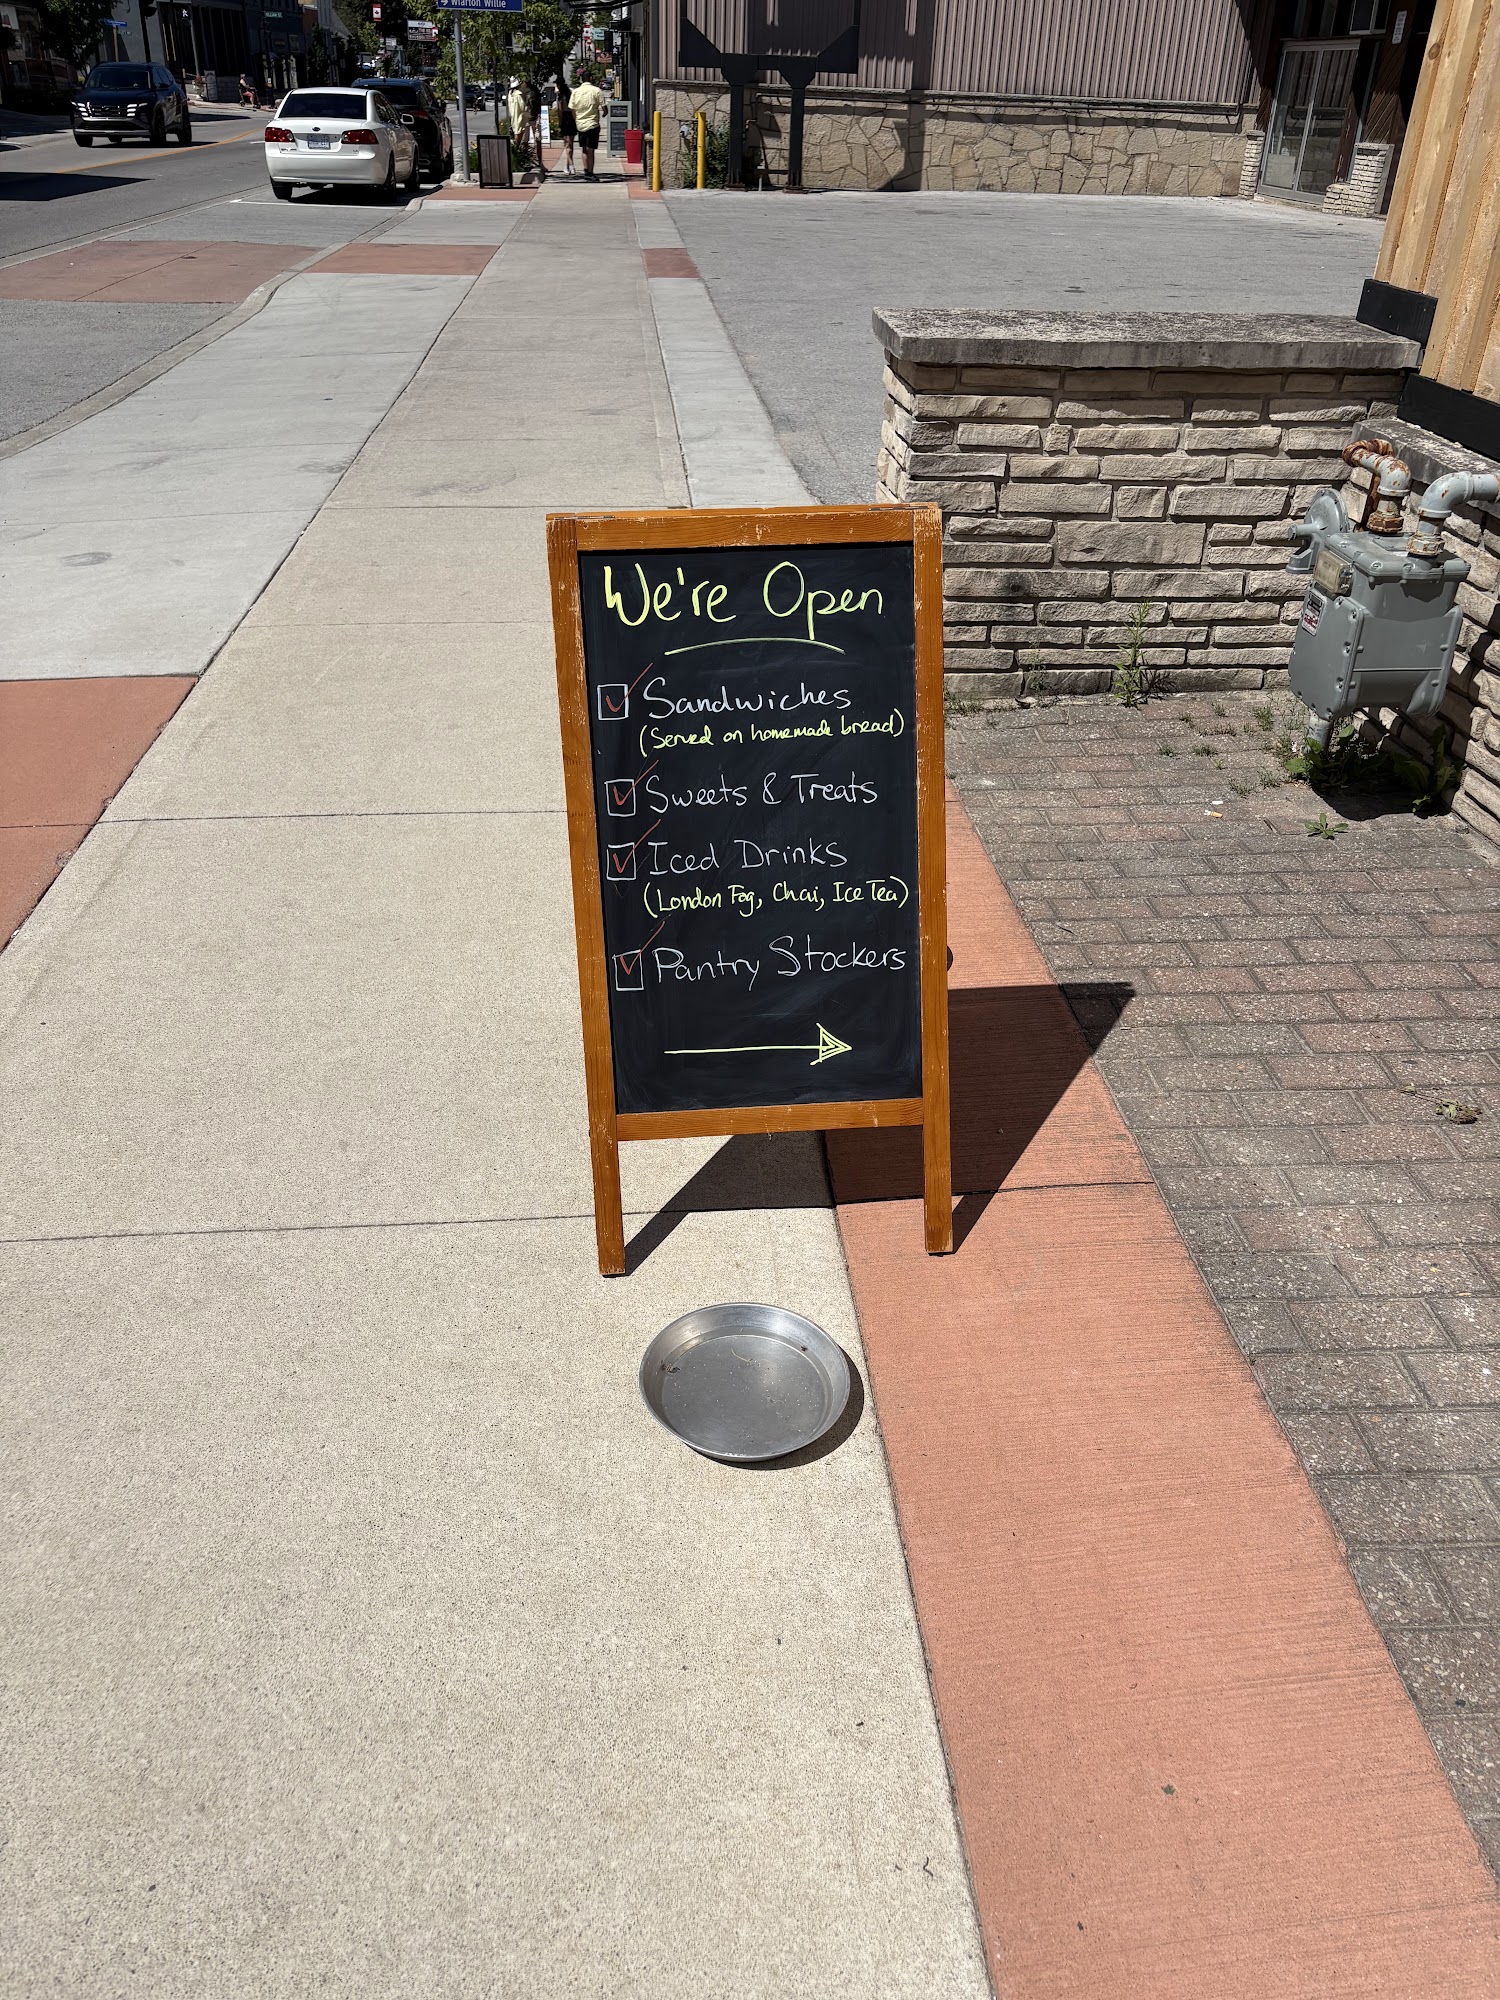 Wiarton Willie
We're Open
Sandwiches
(Served on homemade bread)
Sweets & Treats
Iced Drinks
(London Fog, Chai, Ice Tea)
Pantry Stockers